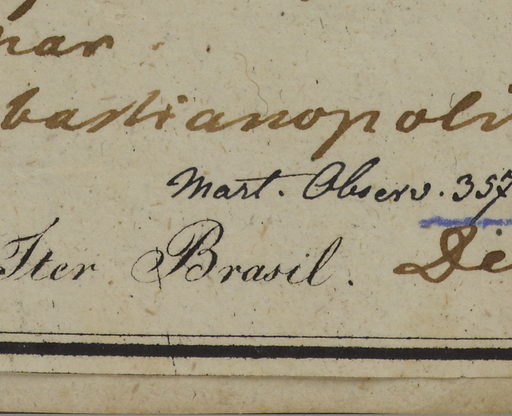 nar.
bastianopoli
Mart. Observ. 357
Iter Brasil. De